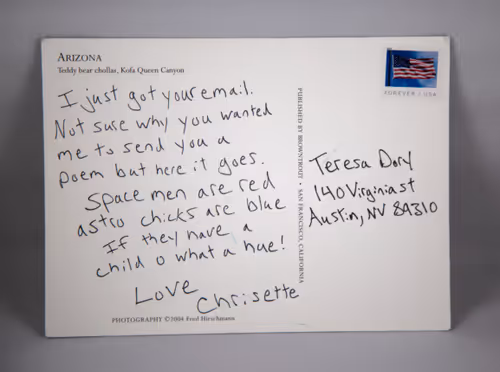 ARIZONA
Teddy bear chollas, Kofa Queen Canyon
I just got your email.
Not sure why you wanted
me to send you a
poem but here it goes.
Space men are red
astro chicks are blue
If they have a
child o what a hue!
Love
Chrisette
PHOTOGRAPHY ©2004 Fred Hirschmann
PUBLISHED BY BROWNTROUT • SAN FRANCISCO, CALIFORNIA
FOREVER / USA
Teresa Dory
140 Virginia st
Austin, NV 89310